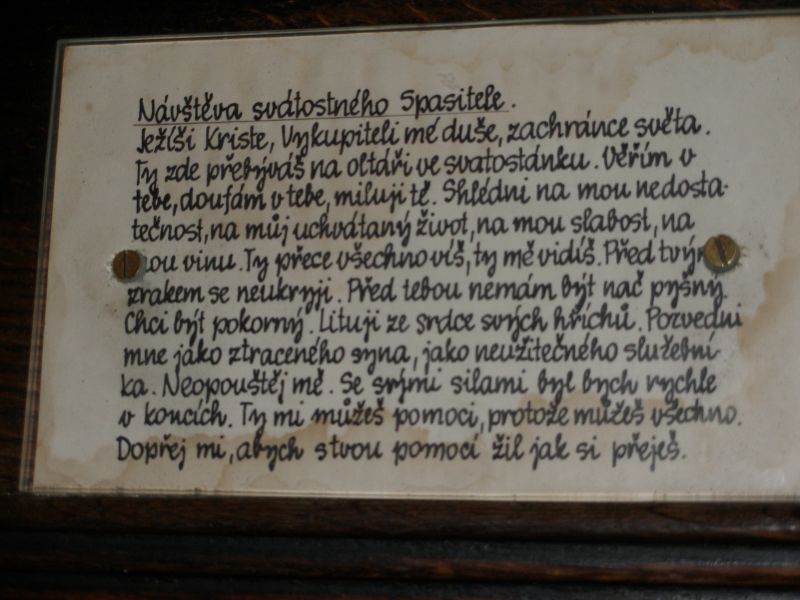 Návštěva svátostného Spasitele.
Ježíši Kriste, Vykupiteli mé duše, zachránce světa.
Ty zde přebýváš na oltáři ve svatostánku. Věřím v
tebe, doufám v tebe, miluji tě. Shlédni na mou nedosta-
tečnost, na můj uchvátaný život, na mou slabost, na
mou vinu. Ty přece všechno víš, ty mě vidíš. Před tvým
zrakem se neukryji. Před tebou nemám být nač pyšný.
Chci být pokorný. Lituji ze srdce svých hříchů. Pozvedni
mne jako ztraceného syna, jako neužitečného služební-
ka. Neopouštěj mě. Se svými silami byl bych rychle
v koncích. Ty mi můžeš pomoci, protože můžeš všechno.
Dopřej mi, abych s tvou pomocí žil jak si přeješ.